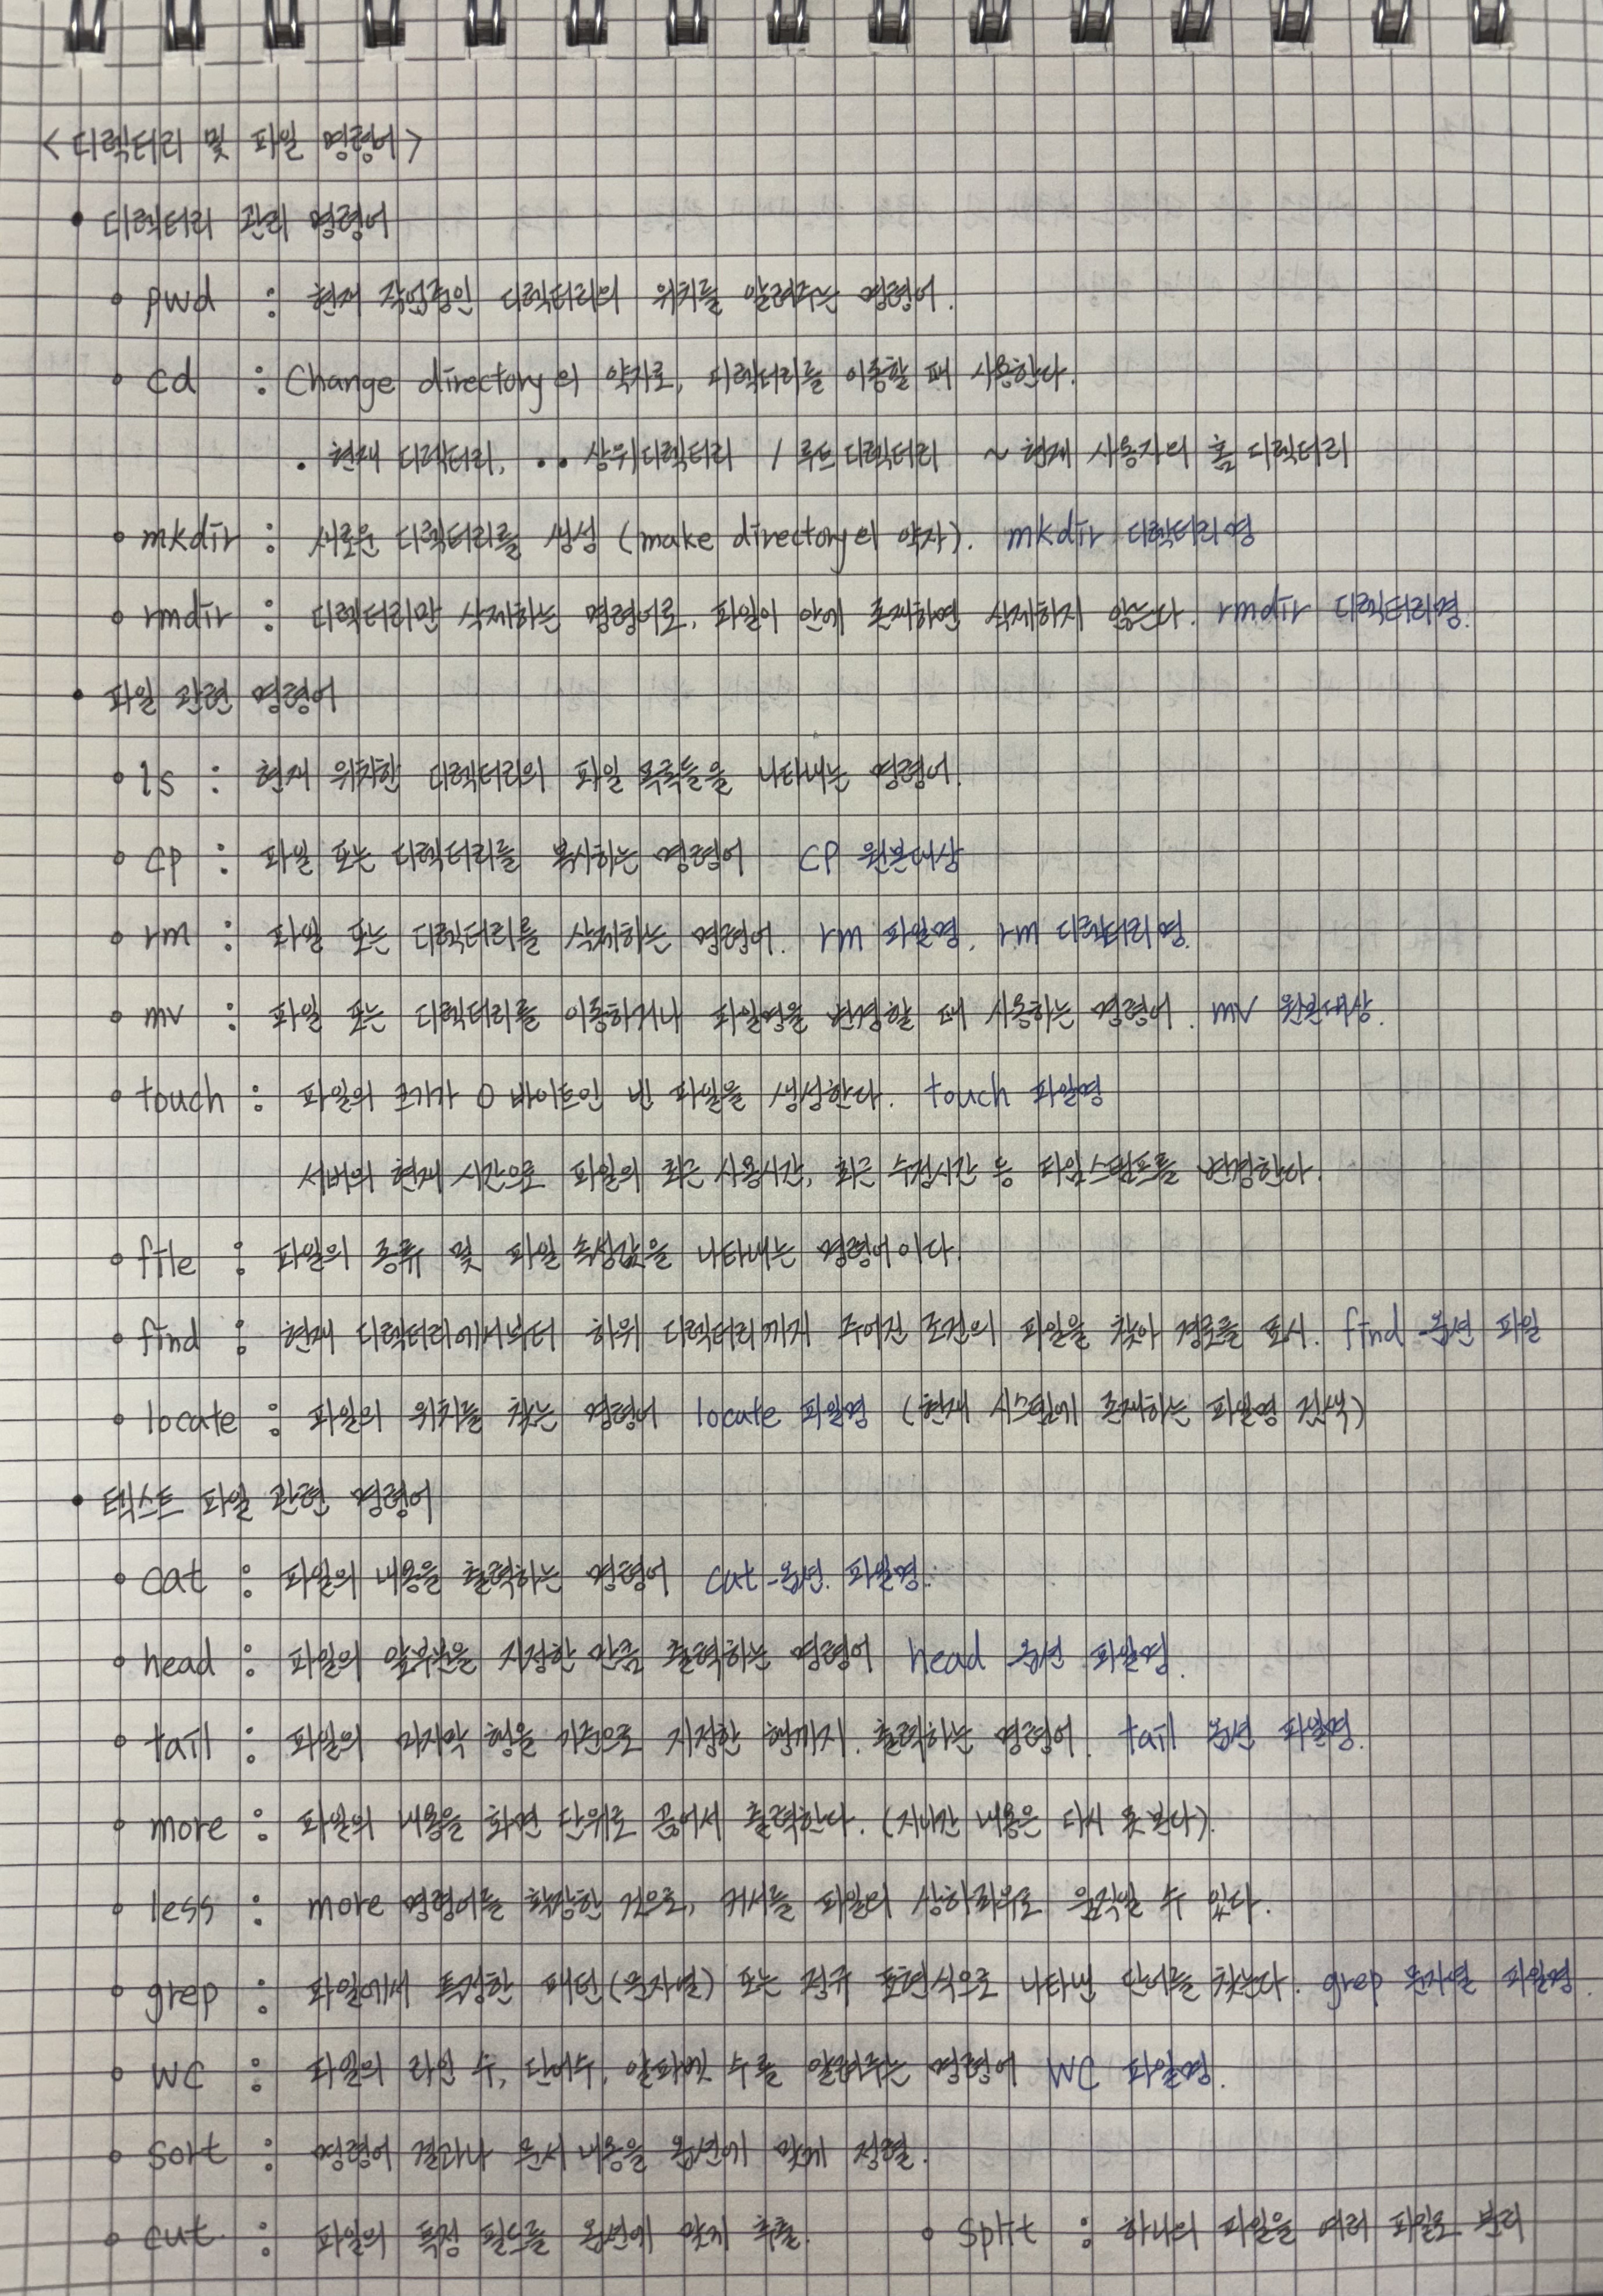 <디렉터리 및 파일 명령어>
• 디렉터리 관리 명령어
∘ pwd : 현재 작업중인 디렉터리의 위치를 알려주는 명령어.
∘ cd : Change directory의 약자로, 디렉터리를 이동할 때 사용한다.
. 현재 디렉터리, .. 상위디렉터리 / 루트디렉터리 ~ 현재 사용자의 홈 디렉터리
∘ mkdir : 새로운 디렉터리를 생성 (make directory의 약자). mkdir 디렉터리명
∘ rmdir : 디렉터리만 삭제하는 명령어로, 파일이 안에 존재하면 삭제하지 않는다. rmdir 디렉터리명.
• 파일 관련 명령어
∘ ls : 현재 위치한 디렉터리의 파일 목록들을 나타내는 명령어.
∘ cp : 파일 또는 디렉터리를 복사하는 명령어 cp 원본대상
∘ rm : 파일 또는 디렉터리를 삭제하는 명령어. rm 파일명, rm 디렉터리명.
∘ mv : 파일 또는 디렉터리를 이동하거나 파일명을 변경할 때 사용하는 명령어. mv 원본대상.
∘ touch : 파일의 크기가 0 바이트인 빈 파일을 생성한다. touch 파일명
서버의 현재 시간으로 파일의 최근 사용시간, 최근 수정시간 등 타임스탬프를 변경한다.
∘ file : 파일의 종류 및 파일 속성값을 나타내는 명령어이다.
∘ find : 현재 디렉터리에서부터 하위 디렉터리까지 주어진 조건의 파일을 찾아 경로를 표시. find -옵션 파일
∘ locate : 파일의 위치를 찾는 명령어 locate 파일명 (현재 시스템에 존재하는 파일명 검색)
• 텍스트 파일 관련 명령어
∘ cat : 파일의 내용을 출력하는 명령어 cat -옵션. 파일명.
∘ head : 파일의 앞부분을 지정한 만큼 출력하는 명령어 head -옵션 파일명.
∘ tail : 파일의 마지막 행을 기준으로 지정한 행까지. 출력하는 명령어. tail 옵션 파일명.
∘ more : 파일의 내용을 화면 단위로 끊어서 출력한다. (지나간 내용은 다시 못본다).
∘ less : more 명령어를 확장한 것으로, 커서를 파일의 상하좌우로 움직일 수 있다.
∘ grep : 파일에서 특정한 패턴(문자열) 또는 정규 표현식으로 나타낸 단어를 찾는다. grep 문자열 파일명.
∘ wc : 파일의 라인 수, 단어수, 알파벳 수를 알려주는 명령어 wc 파일명.
∘ sort : 명령어 결과나 문서 내용을 옵션에 맞게 정렬.
∘ cut : 파일의 특정 필드를 옵션에 맞게 추출. ∘ split : 하나의 파일을 여러 파일로 분리